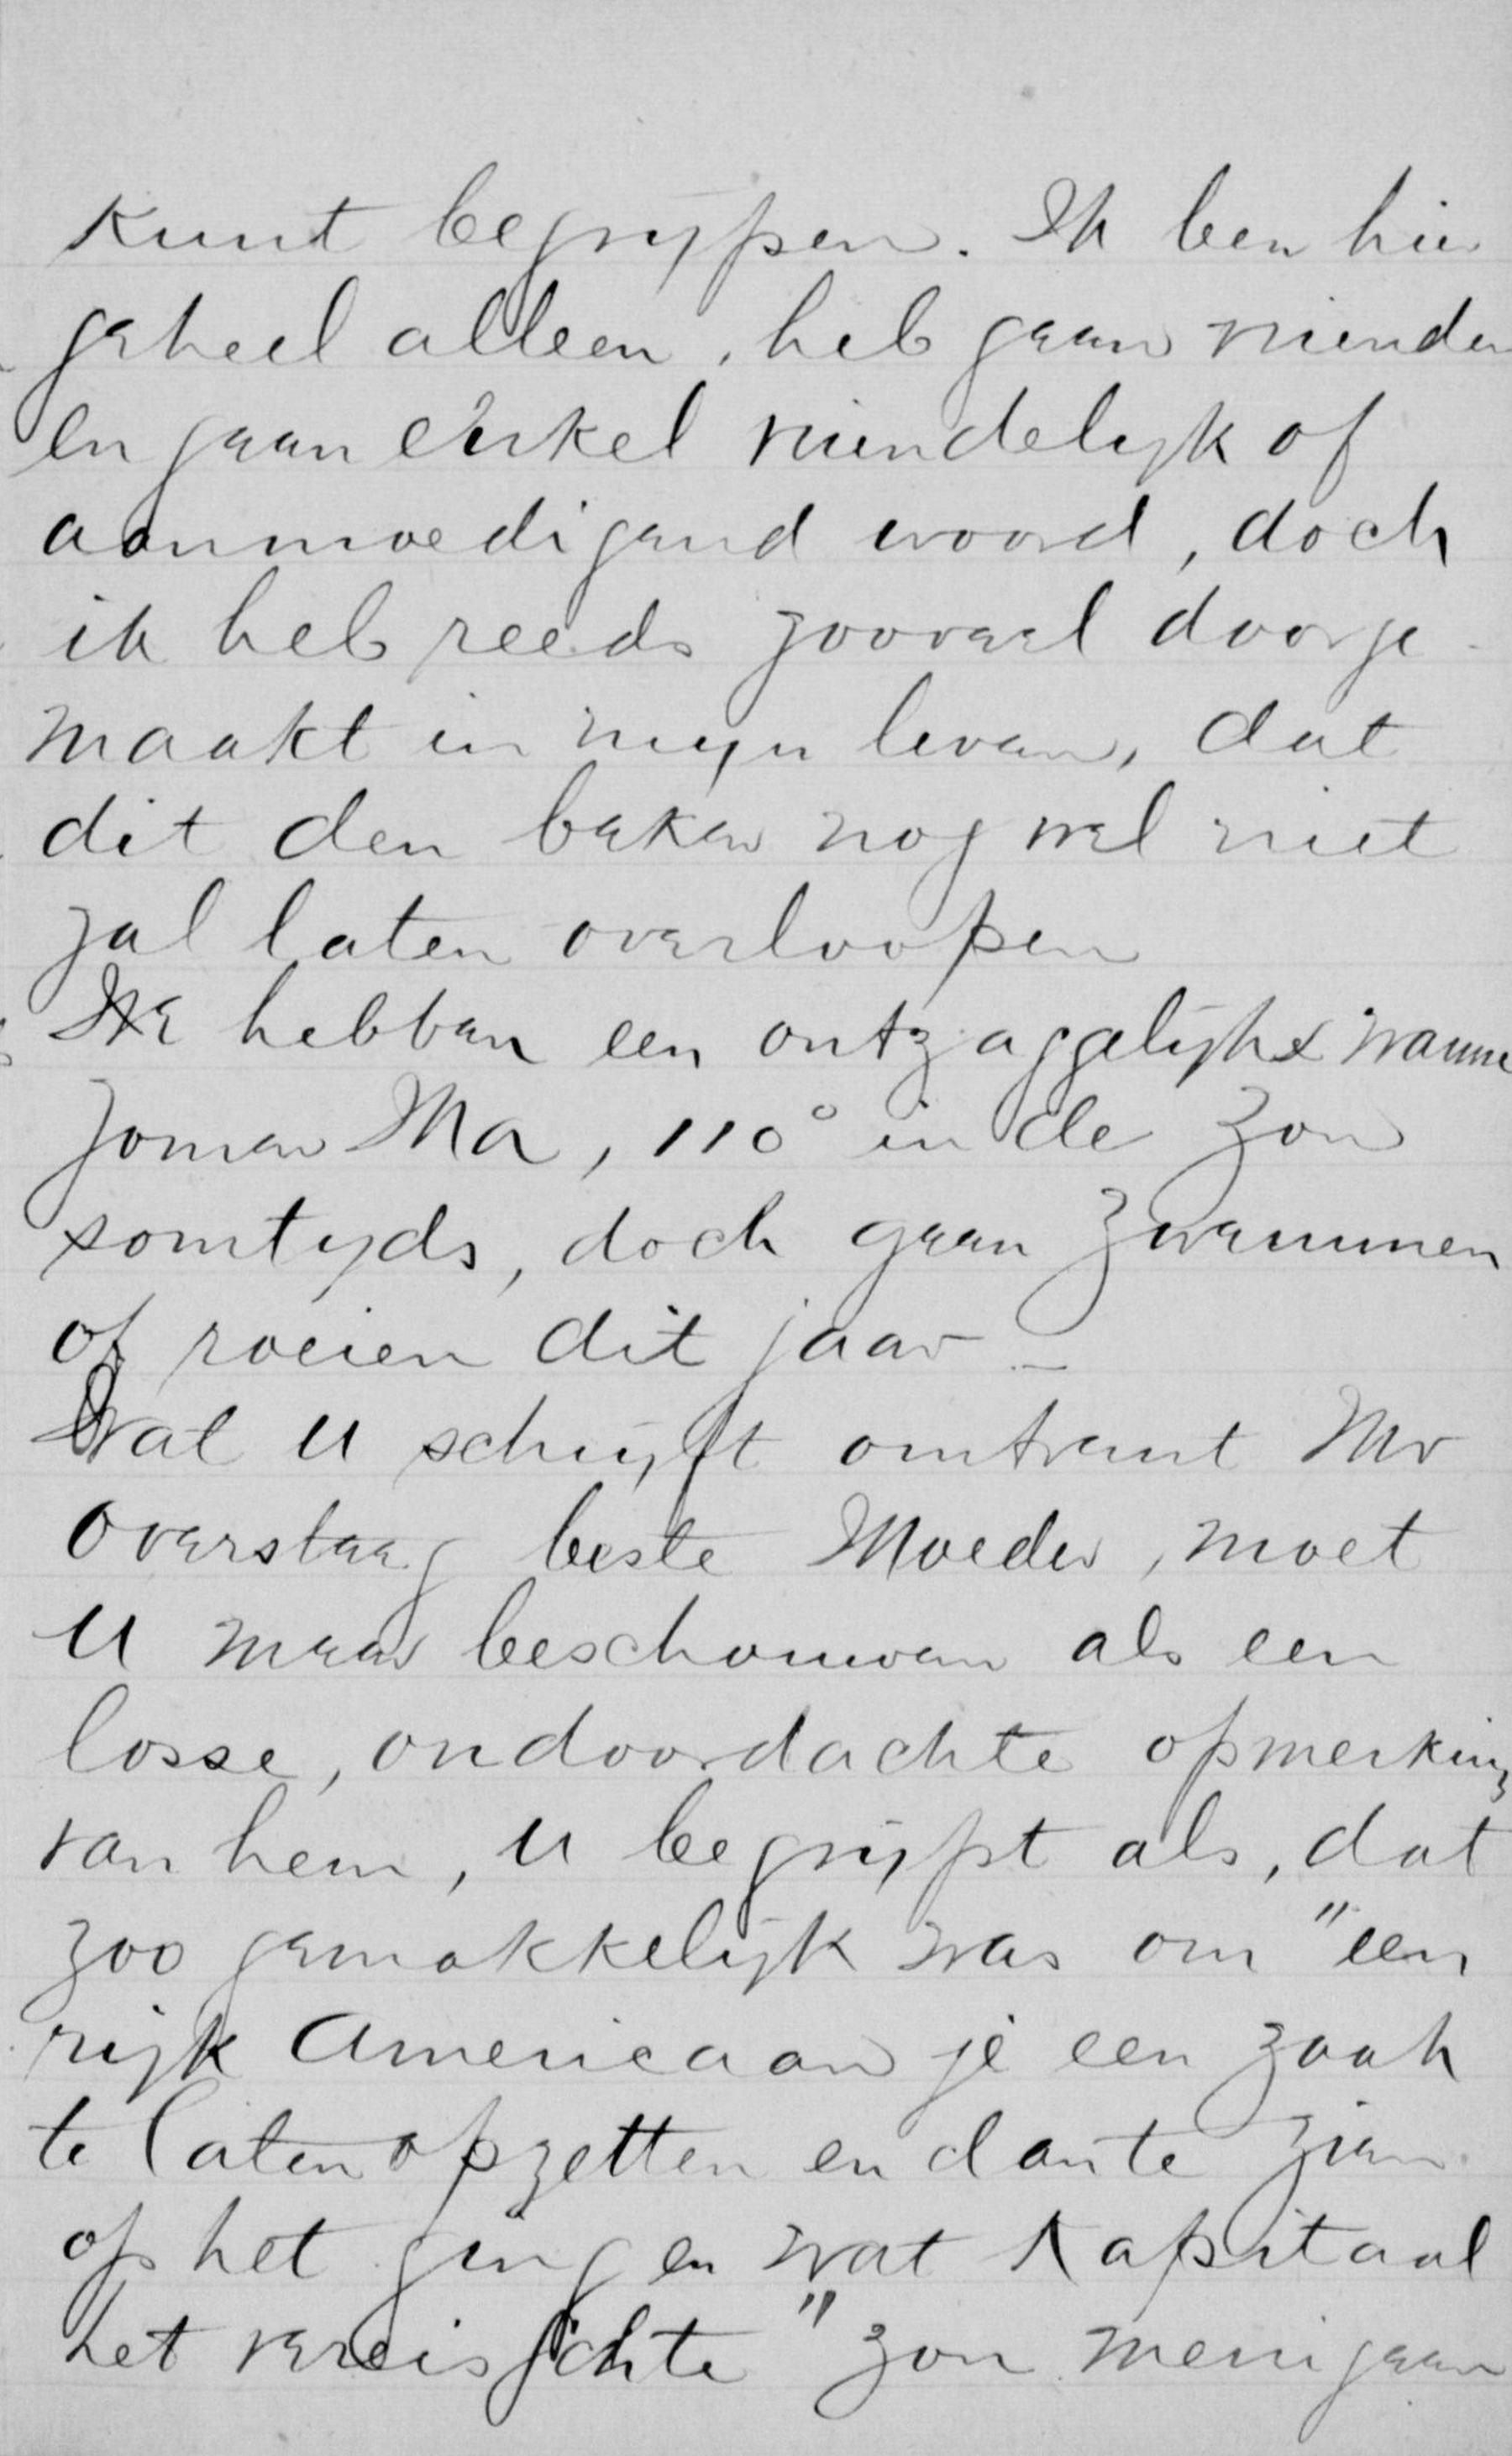 kunt begrijpen. Ik ben hier
geheel alleen, heb geen vrienden
en geen enkel vriendelijk of
aanmoedigend woord, doch
ik heb reeds zooveel doorge-
maakt in mijn leven, dat
dit den beker nog wel niet
zal laten overloopen
We hebben een ontzaggelijke warme
zomer Ma, 110° in de zon
somtyds, doch geen zwemmen
of roeien dit jaar –
Wat U schrijft omtrent Mr
Oversteeg beste Moeder, moet
U maar beschouwen als een
losse, ondoordachte opmerking
van hem, U begrijpt als, dat
zoo gemakkelijk was om "een
rijk Americaan je een zaak
te laten opzetten en dan te zien
of het ging en wat Kapitaal
het vereischte" zou menigeen